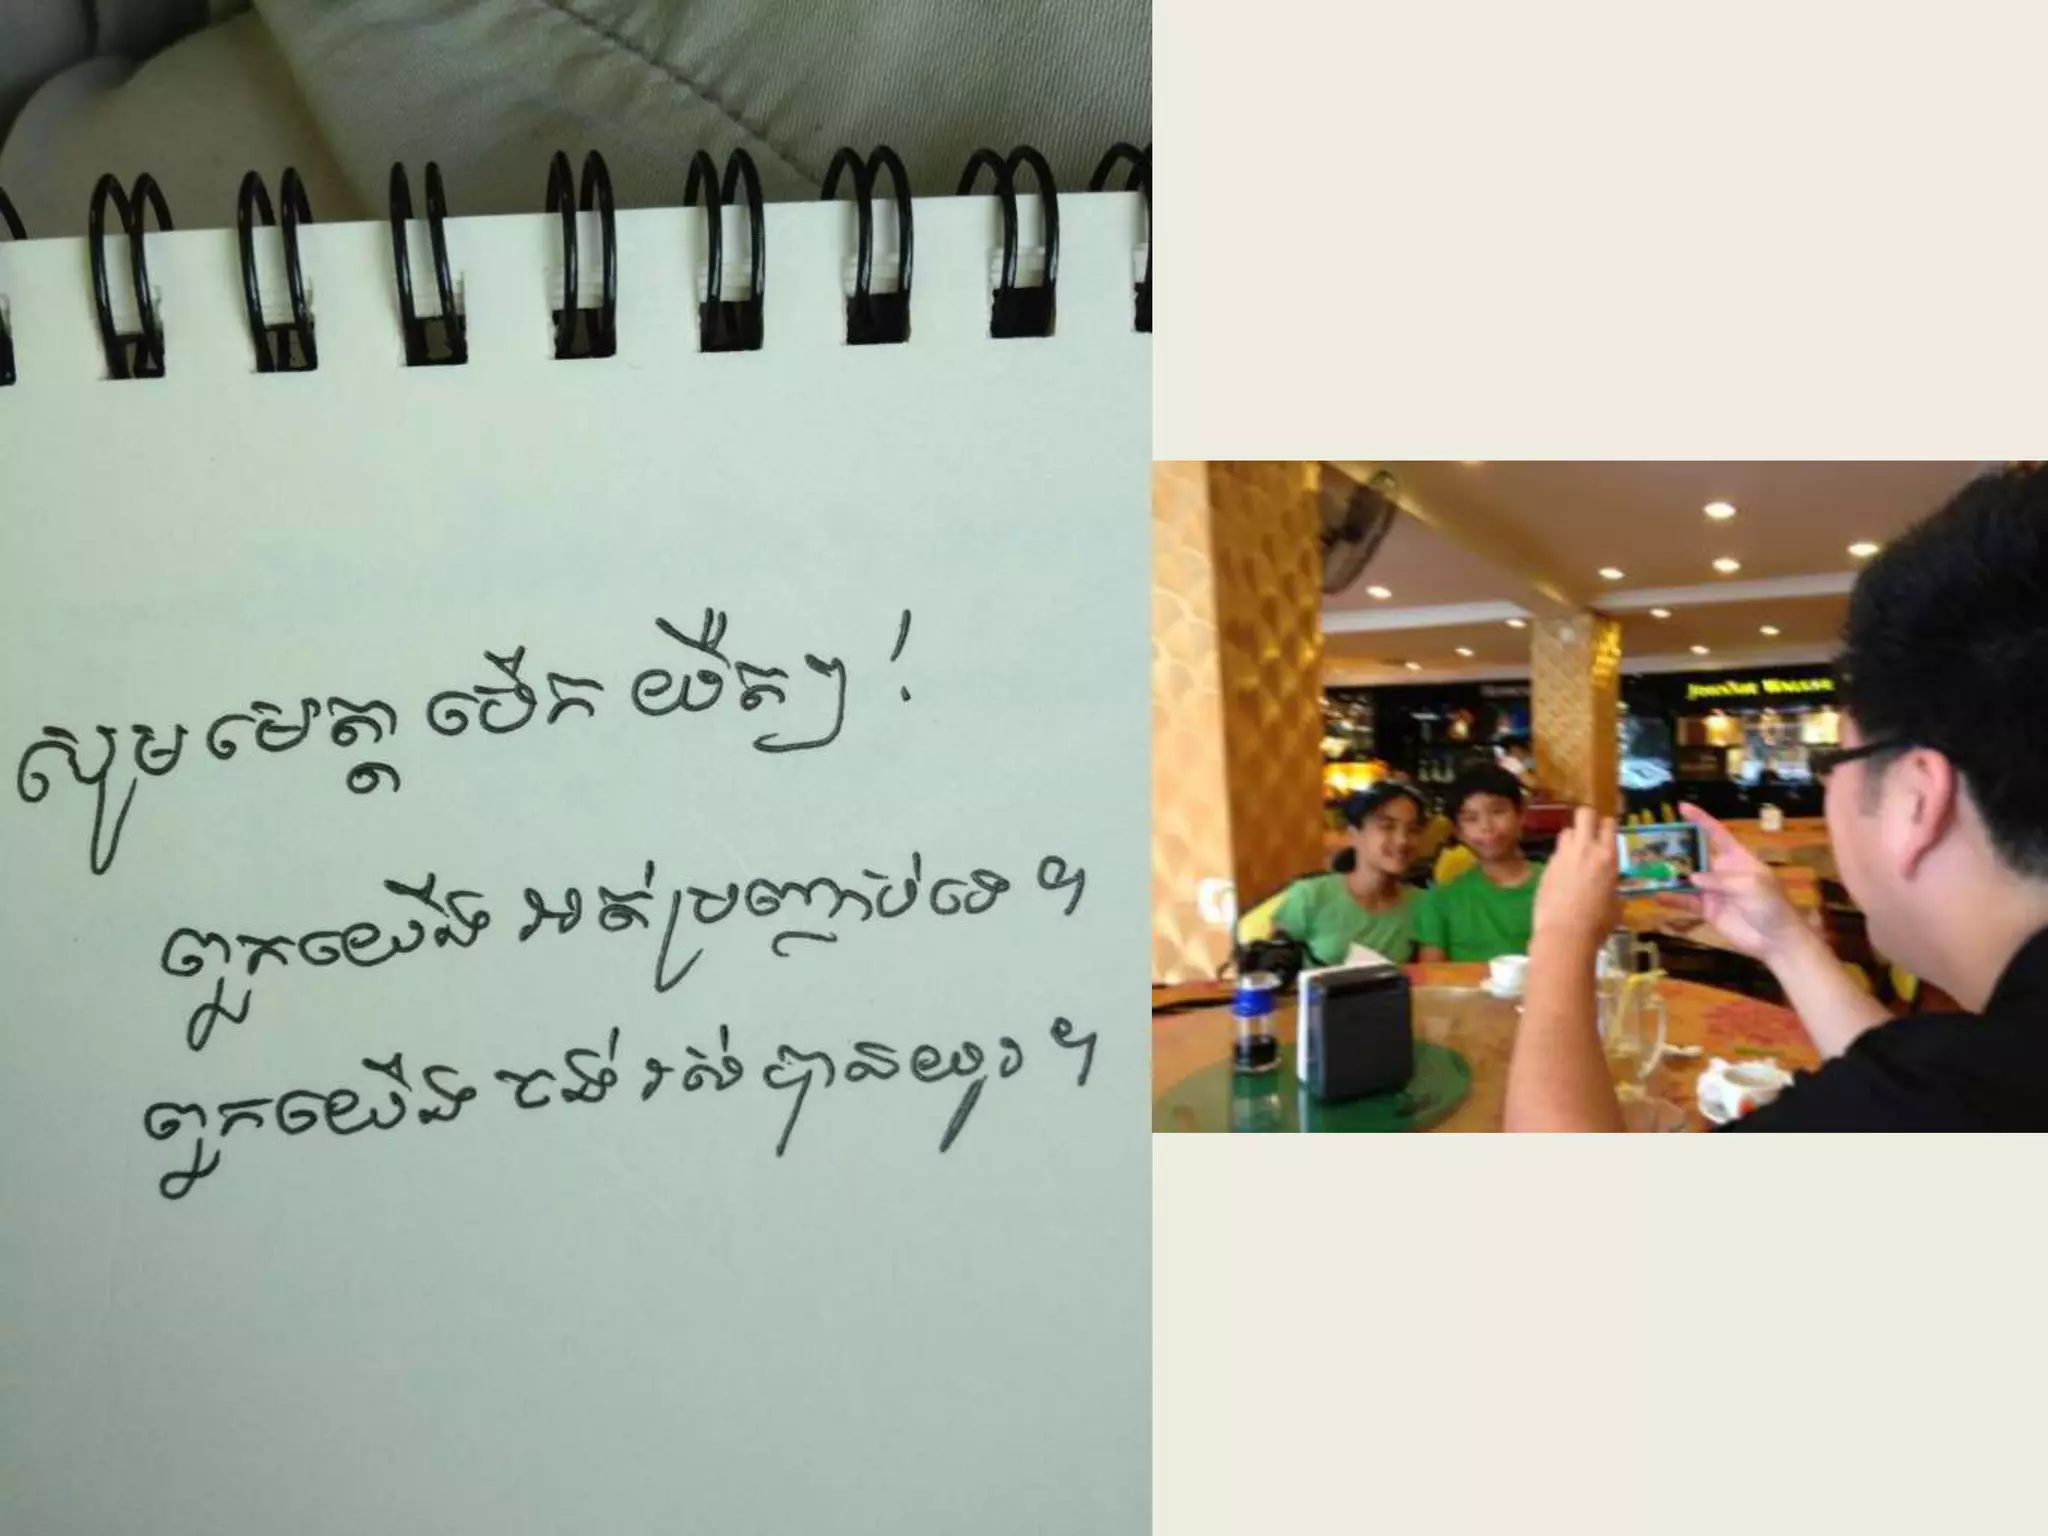 សូមមេត្តា បើក យឺតៗ !
ពួកយើង អត់ប្រញាប់ទេ ។
ពួកយើង ចង់ រស់ បានយូរ ។
JOHNNIE WALKER